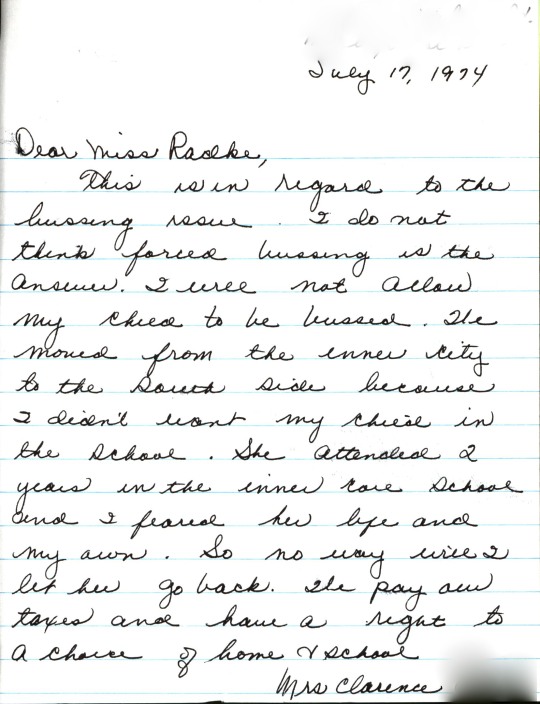 July 17, 1974
Dear Miss Radke,
This is in regard to the
bussing issue. I do not
think forced bussing is the
answer. I will not allow
my child to be bussed. We
moved from the inner city
to the South side because
I didn't want my child in
the school. She attended 2
years in the inner core school
and I feared her life and
my own. So no way will I
let her go back. We pay our
taxes and have a right to
a choice of home & school
Mrs Clarence